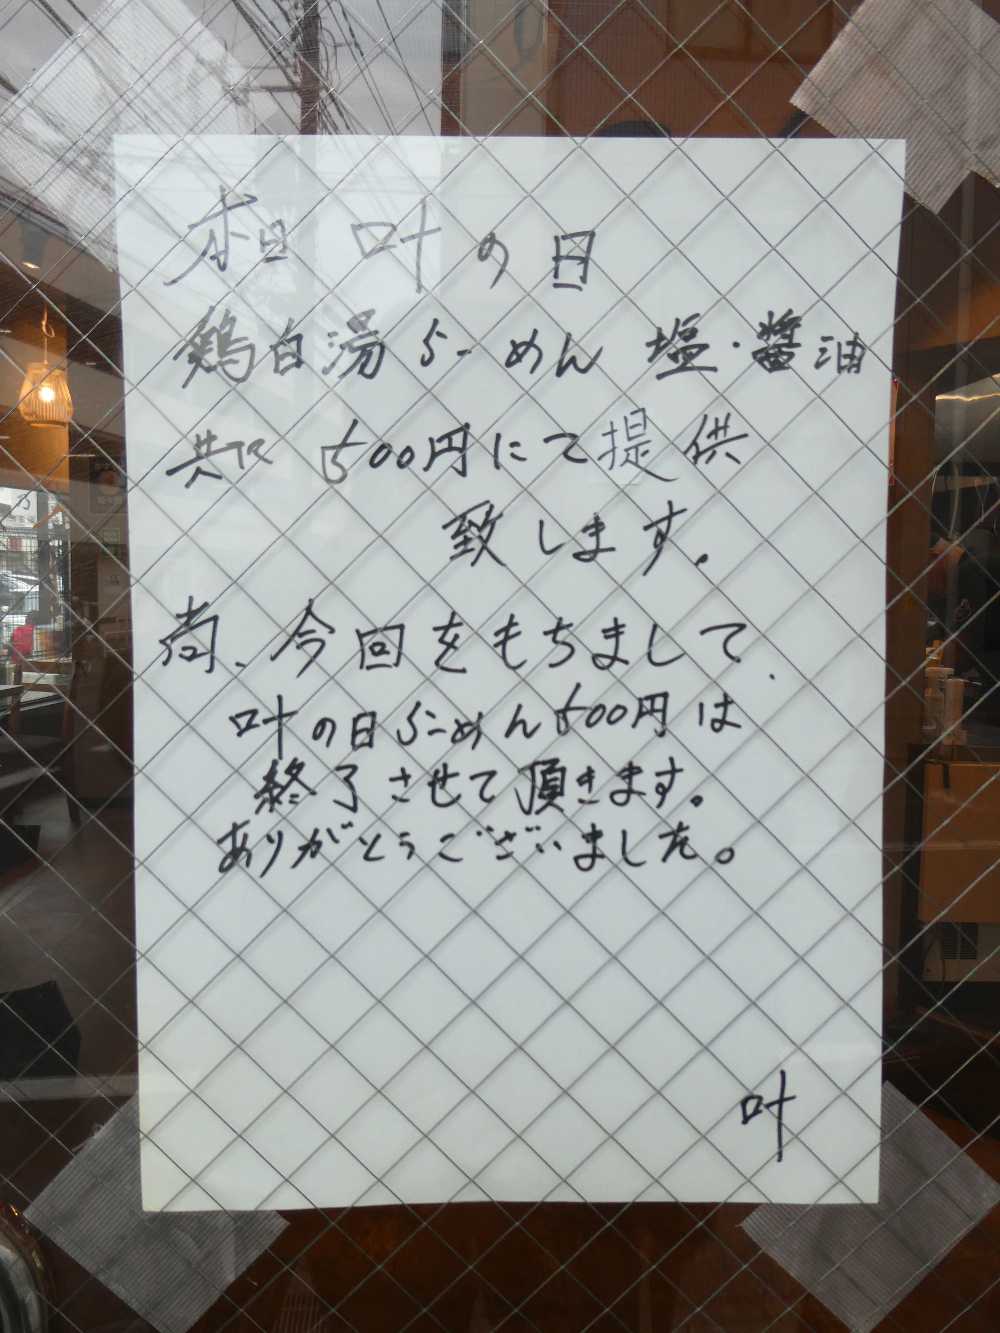 本日 叶の日
鶏白湯らーめん 塩・醤油
共に 500円にて提供
致します。
尚、今回をもちまして、
叶の日らーめん500円は
終了させて頂きます。
ありがとうございました。
叶